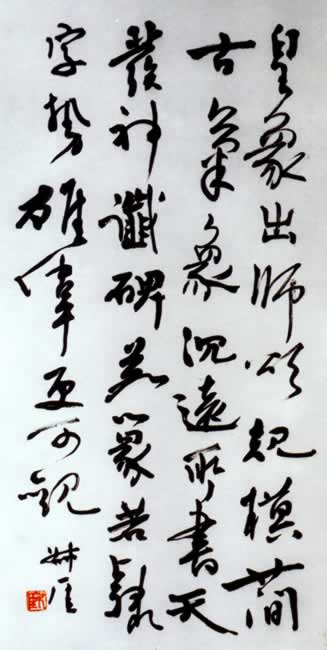 皇象出師頌規模簡
古氣象沉遠所書天
發神讖碑若篆若隸
字勢雄偉更可觀